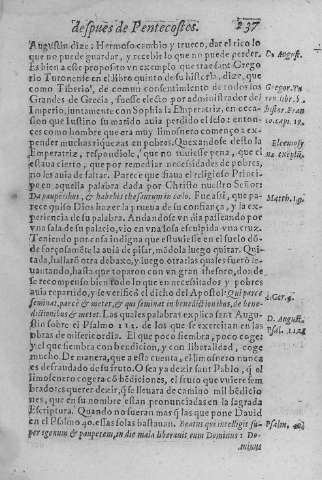 despues de Pentecostes. 237
Augustin dize: Hermoso cambio y trueco, dar el rico lo
que no puede guardar, y recebir lo que no puede perder.
Es bien a este proposito vn exemplo que trae sant Grego
rio Turonense en el libro quinto de su historia, dize, que
como Tiberio, de comun consentimiento de todos los
Grandes de Grecia, fuesse electo por administrador del
Imperio, juntamente con Sophia la Emperatriz, en ocasion
que Iustino su marido auia perdido el seso: entonces
como hombre que era muy limosnero començo a expender
muchas riquezas en pobres. Quexandose desto la
Emperatriz, respondiole, que no tuuiesse pena, que el
estaua cierto, que por remediar necessidades de pobres,
no les auia de faltar. Parece que fiaua el religioso Principe
en aquella palabra dada por Christo nuestro Señor:
Da pauperibus, & habebis thesaurum in cælo. Fue assi, que parece
quiso Dios hazer la prueua de su confiança, y la experiencia
de su palabra. Andandose vn dia passeando por
vna sala de su palacio, vio en vna losa esculpida vna cruz.
Teniendo por cosa indigna que estuuiesse en el suelo donde
forçosamente la auia de pisar, mandola luego quitar. Quitada,
hallarõ otra debaxo, y luego otra: las quales fuerõ leuantando,
hasta que toparon con vn gran thesoro, donde
se recompenso bien todo lo que en necessitados y pobres
auia repartido, y se verificó el dicho del Apostol: Qui parce
seminat, parce & metet, & qui seminat in benedictionibus, de benedictionibus
& metet. Las quales palabras explica sant Augustin
sobre el Psalmo 111. de los que se exercitan en las
obras de misericordia. El que poco siembra, poco coge:
y el que siembra con bendicion, y con liberalidad, coge
mucho. De manera, que a esta cuenta, el limosnero nunca
es defraudado de su fruto. O sea ya dezir sant Pablo, q̃ el
limosnero cogera cõ bẽdiciones, el fruto que viuere sembrado:
es querer dezir, q̃ se lleuara de camino mil bẽdiciones,
que en su nombre estan pronunciadas en la sagrada
Escriptura. Quando no fueran mas q̃ las que pone Dauid
en el Psalmo 40. ellas solas bastauan. Beatus qui intelligit super
egenum & pauperem, in die mala liberauit eum Dominus: Dominus
D. August.
Gregor. Tu
ron. libr. 5.
histor. Fran
co. cap. 19.
Eleemosy
næ exeplũ.
Matth. 19.
2. Cor. 9.
D. August.
Psal. 111.
Psalm. 40.